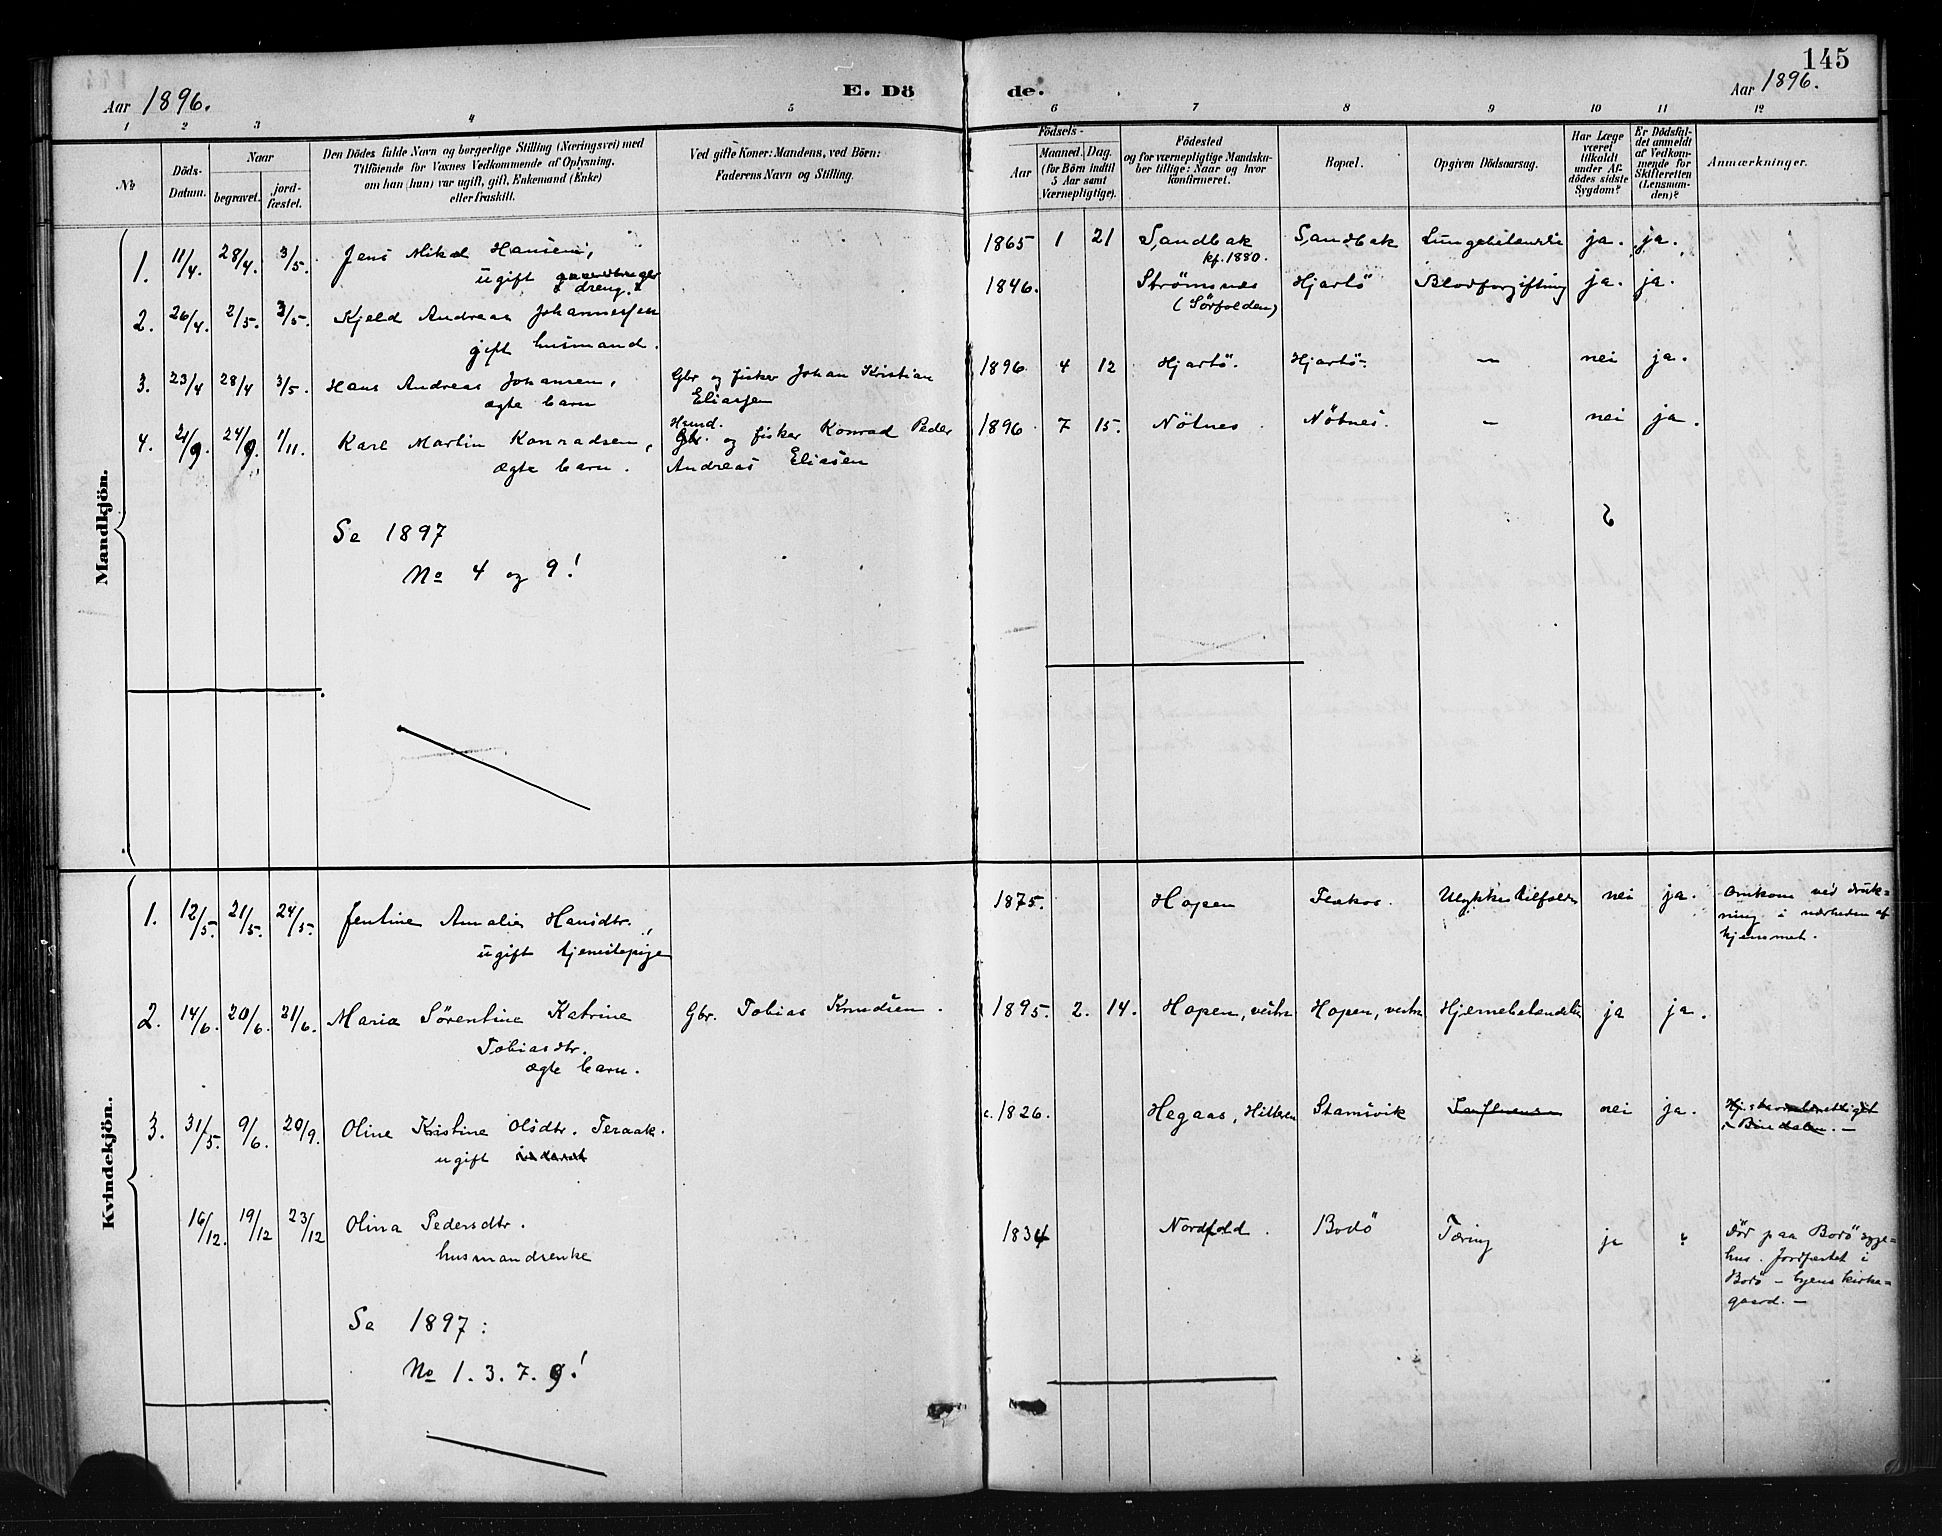 145
Aar 1896.
E. Dö
de.
Aar 1896.
1 2 3 4 5 6 7 8 9 10 11 12
No
Döds-Datum.
Naar
begravet.
jord-fæstet.
Den Dödes fulde Navn og borgerlige Stilling (Næringsvei) med
Tilföiende for Voxnes Vedkommende af Oplysning,
om han (hun) var ugift, gift, Enkemand (Enke)
eller fraskilt.
Ved gifte Koner: Mandens, ved Börn:
Faderens Navn og Stilling.
Födsels-
Aar
Maaned. Dag.
(for Börn indtil
5 Aar samt
Værnepligtige).
Födested
og for værnepligtige Mandska-
ber tillige: Naar og hvor
konfirmeret.
Bopæl.
Opgiven Dödsaarsag.
Har Læge
været
tilkaldt
under Af-
dödes sidste
Sygdom?
Er Dödsfal-
det anmeldt
af Vedkom-
mende for
Skifteretten
(Lensman-
den)?
Anmærkninger.
Mandkjön.
1. 11/4. 28/4. 3/5. Jens Mikal Hansen, 1865 1 21 Sandbak Sandbak Lungebetændelse ja. ja.
ugift
dreng.
kf. 1880.
2. 26/4. 2/5. 3/5. Kjeld Andreas Johannessen 1846. Strömsnes Hjartö Blodforgiftning ja. ja.
gift husmand.
(Sörfolden)
3. 23/4 28/4 3/5. Hans Andreas Johansen, Gbr og fisker Johan Kristian 1896 4 12 Hjartö. Hjartö. — nei ja.
ægte barn Eliassen
4. 21/9. 24/9. 1/11. Karl Martin Konradsen, Gbr. og fisker Konrad Peder 1896 7 15. Nötnes. Nötnes. — nei ja.
Husmd.
ægte barn. Andreas Eliasen
Se 1897
No 4 og 9!
Kvindekjön.
1. 12/5. 21/5. 24/5. Jentine Amalie Hansdtr., 1875. Hopen Ulykkestilfælde nei ja. Omkom ved druk-
ugift tjenestepige
ning i nærheden af
hjemmet.
2. 14/6. 20/6. 21/6. Maria Sörentine Katrine Gbr. Tobias Knudsen. 1895. 2. 14. Hopen, vestre Hopen, vestre Hjernebetændelse ja ja.
Tobiasdtr.
ægte barn.
3. 31/5. 9/6. 20/9. Oline Kristine Olsdtr. Teraak. c. 1826. Hegaas, Hitteren Stamsvik Influensa nei ja.
ugift inderst
i Bindalen. —
16/12. 19/12 23/12 Olina Pedersdtr. 1834 Nordfold. Bodö Tæring ja ? Död paa Bodö syge-
husmandsenke
hus. Jordfæstet i
Bodö — byens kirke-
gaard. —
Se 1897:
No 1. 3. 7. 9!